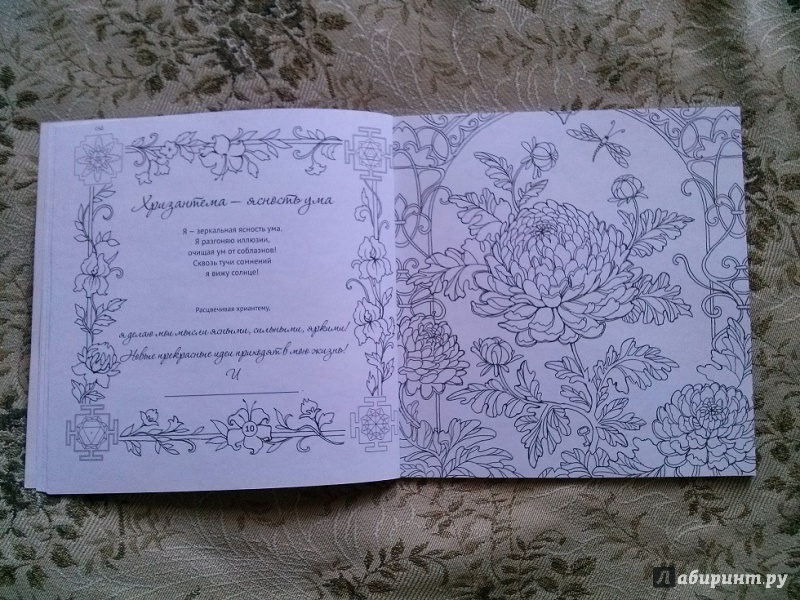 Хризантема — ясность ума
Я — зеркальная ясность ума.
Я разгоняю иллюзии,
очищая ум от соблазнов!
Сквозь тучи сомнений
я вижу солнце!
Расцвечивая хризантему,
я делаю мои мысли ясными, сильными, яркими!
Новые прекрасные идеи приходят в мою жизнь!
И
10
Лабиринт.ру